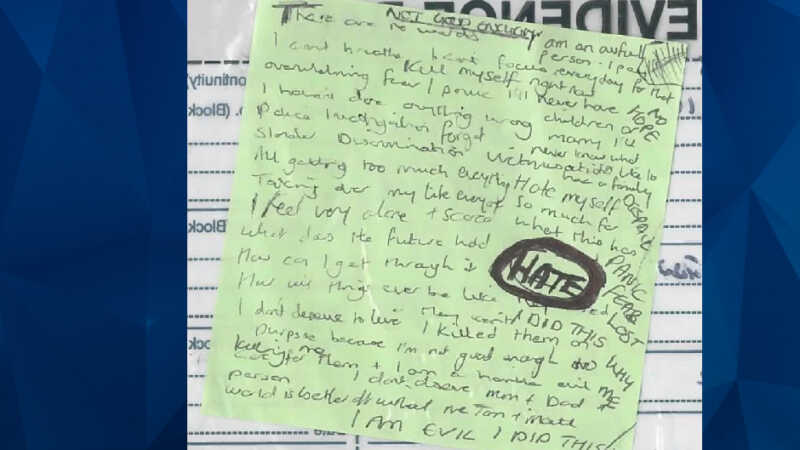 EVIDENCE
NOT GOOD ENOUGH
There are no words
am an awful person. I pay
I cant breathe I cant focus everyday for that
Kill myself right now
overwhelming fear / panic I'll never have
children or
NO HOPE
I haven't done anything wrong marry I'll
never know what
Police investigation forget its like to
Slander Discrimination Victimisation have a family
All getting too much everything Hate myself
DESPAIR
Taking over my life everyone so much for
what this has
I feel very alone + scared
PANIC
What does the future hold
HATE
FEAR
How can I get through it
LOST
How will things ever be like they used
I DID THIS
I don't deserve to live I killed them on
WHY ME
purpose because I'm not good enough to
care for them + I am a horrible evil
person I don't deserve Mum + Dad
Killing me
world is better off without me
I AM EVIL I DID THIS
Continuity
(Block
(Block
(Block
(Block